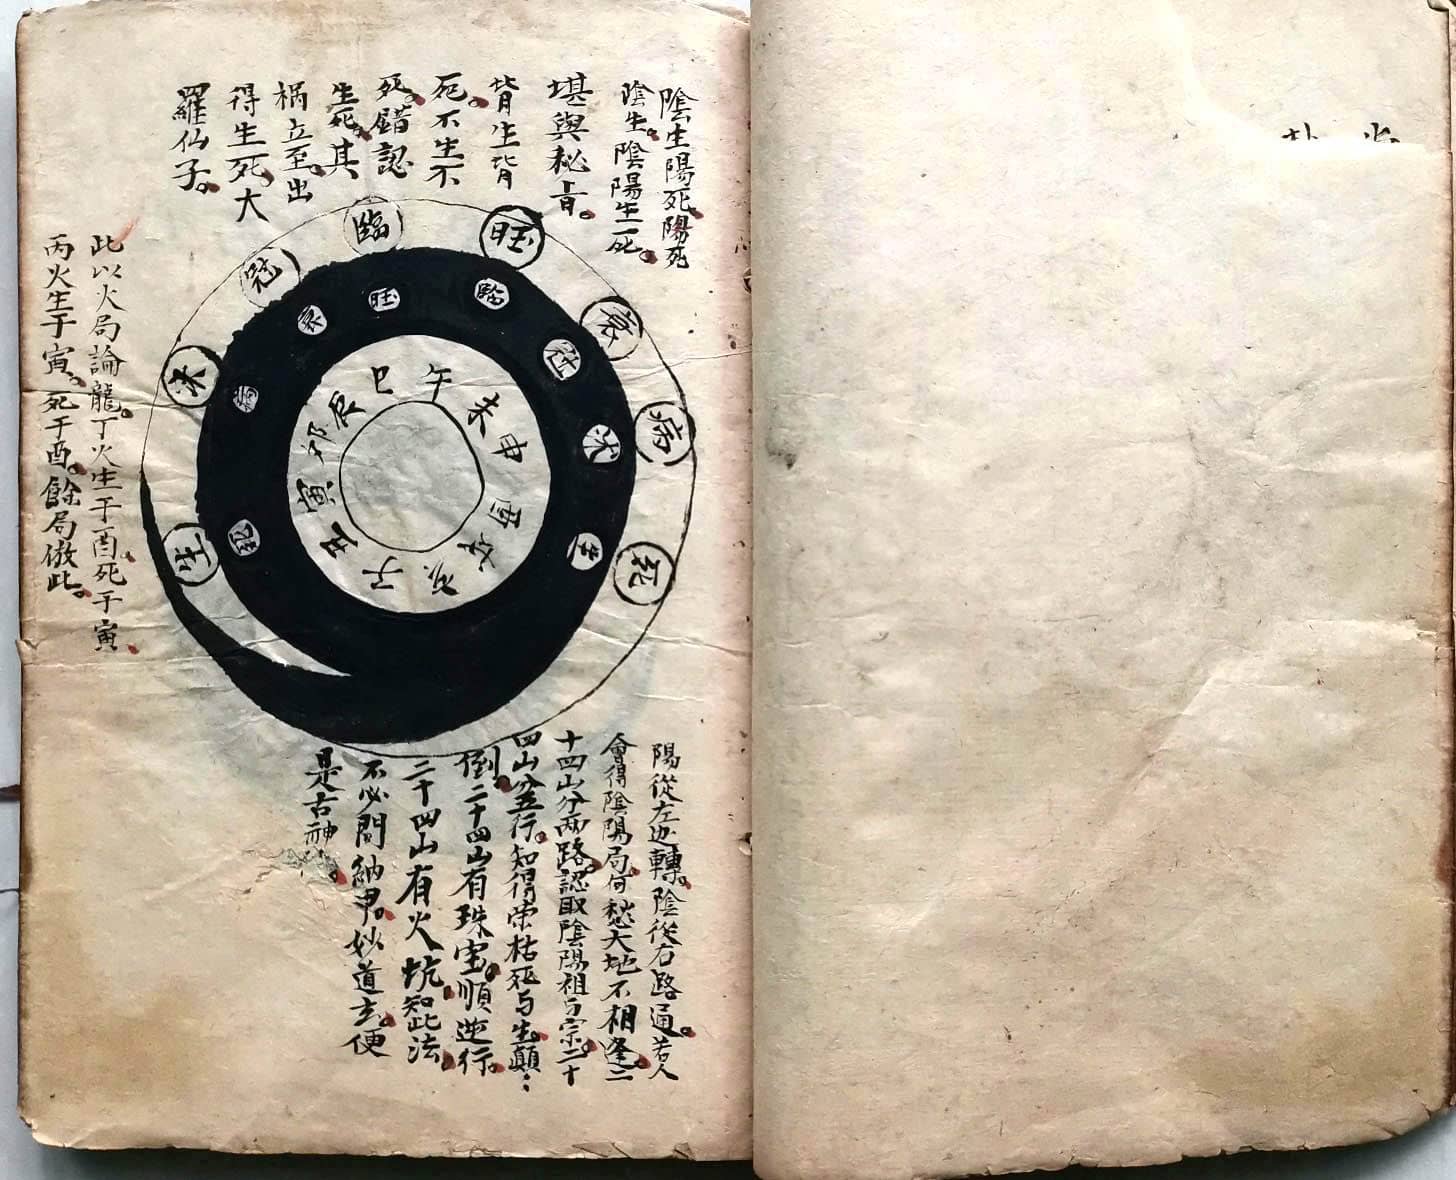 陰生陽死。陽死
陰生。陰陽生死。
堪輿秘旨。
皆生皆
死。不生不
死。錯認
生死。其
禍立至。出
得生死。大
羅仙子。
臨
旺
冠
衰
沐
病
生
死
衰
旺
臨
冠
病
沐
死
生
巳
午
未
申
酉
戌
亥
子
丑
寅
卯
辰
此以火局論龍。丁火生于酉。死于寅。
丙火生于寅。死于酉。餘局倣此。
陽從左邊轉。陰從右路通。若人
會得陰陽局。何愁大地不相逢。二
十四山分兩路。認取陰陽祖与宗。二十
四山並行。知得荣枯死与生。顛〻
倒。二十四山有珠宝。順逆行。
二十四山有火坑。知此法。
不必問納甲。妙道玄。便
是古神〻。